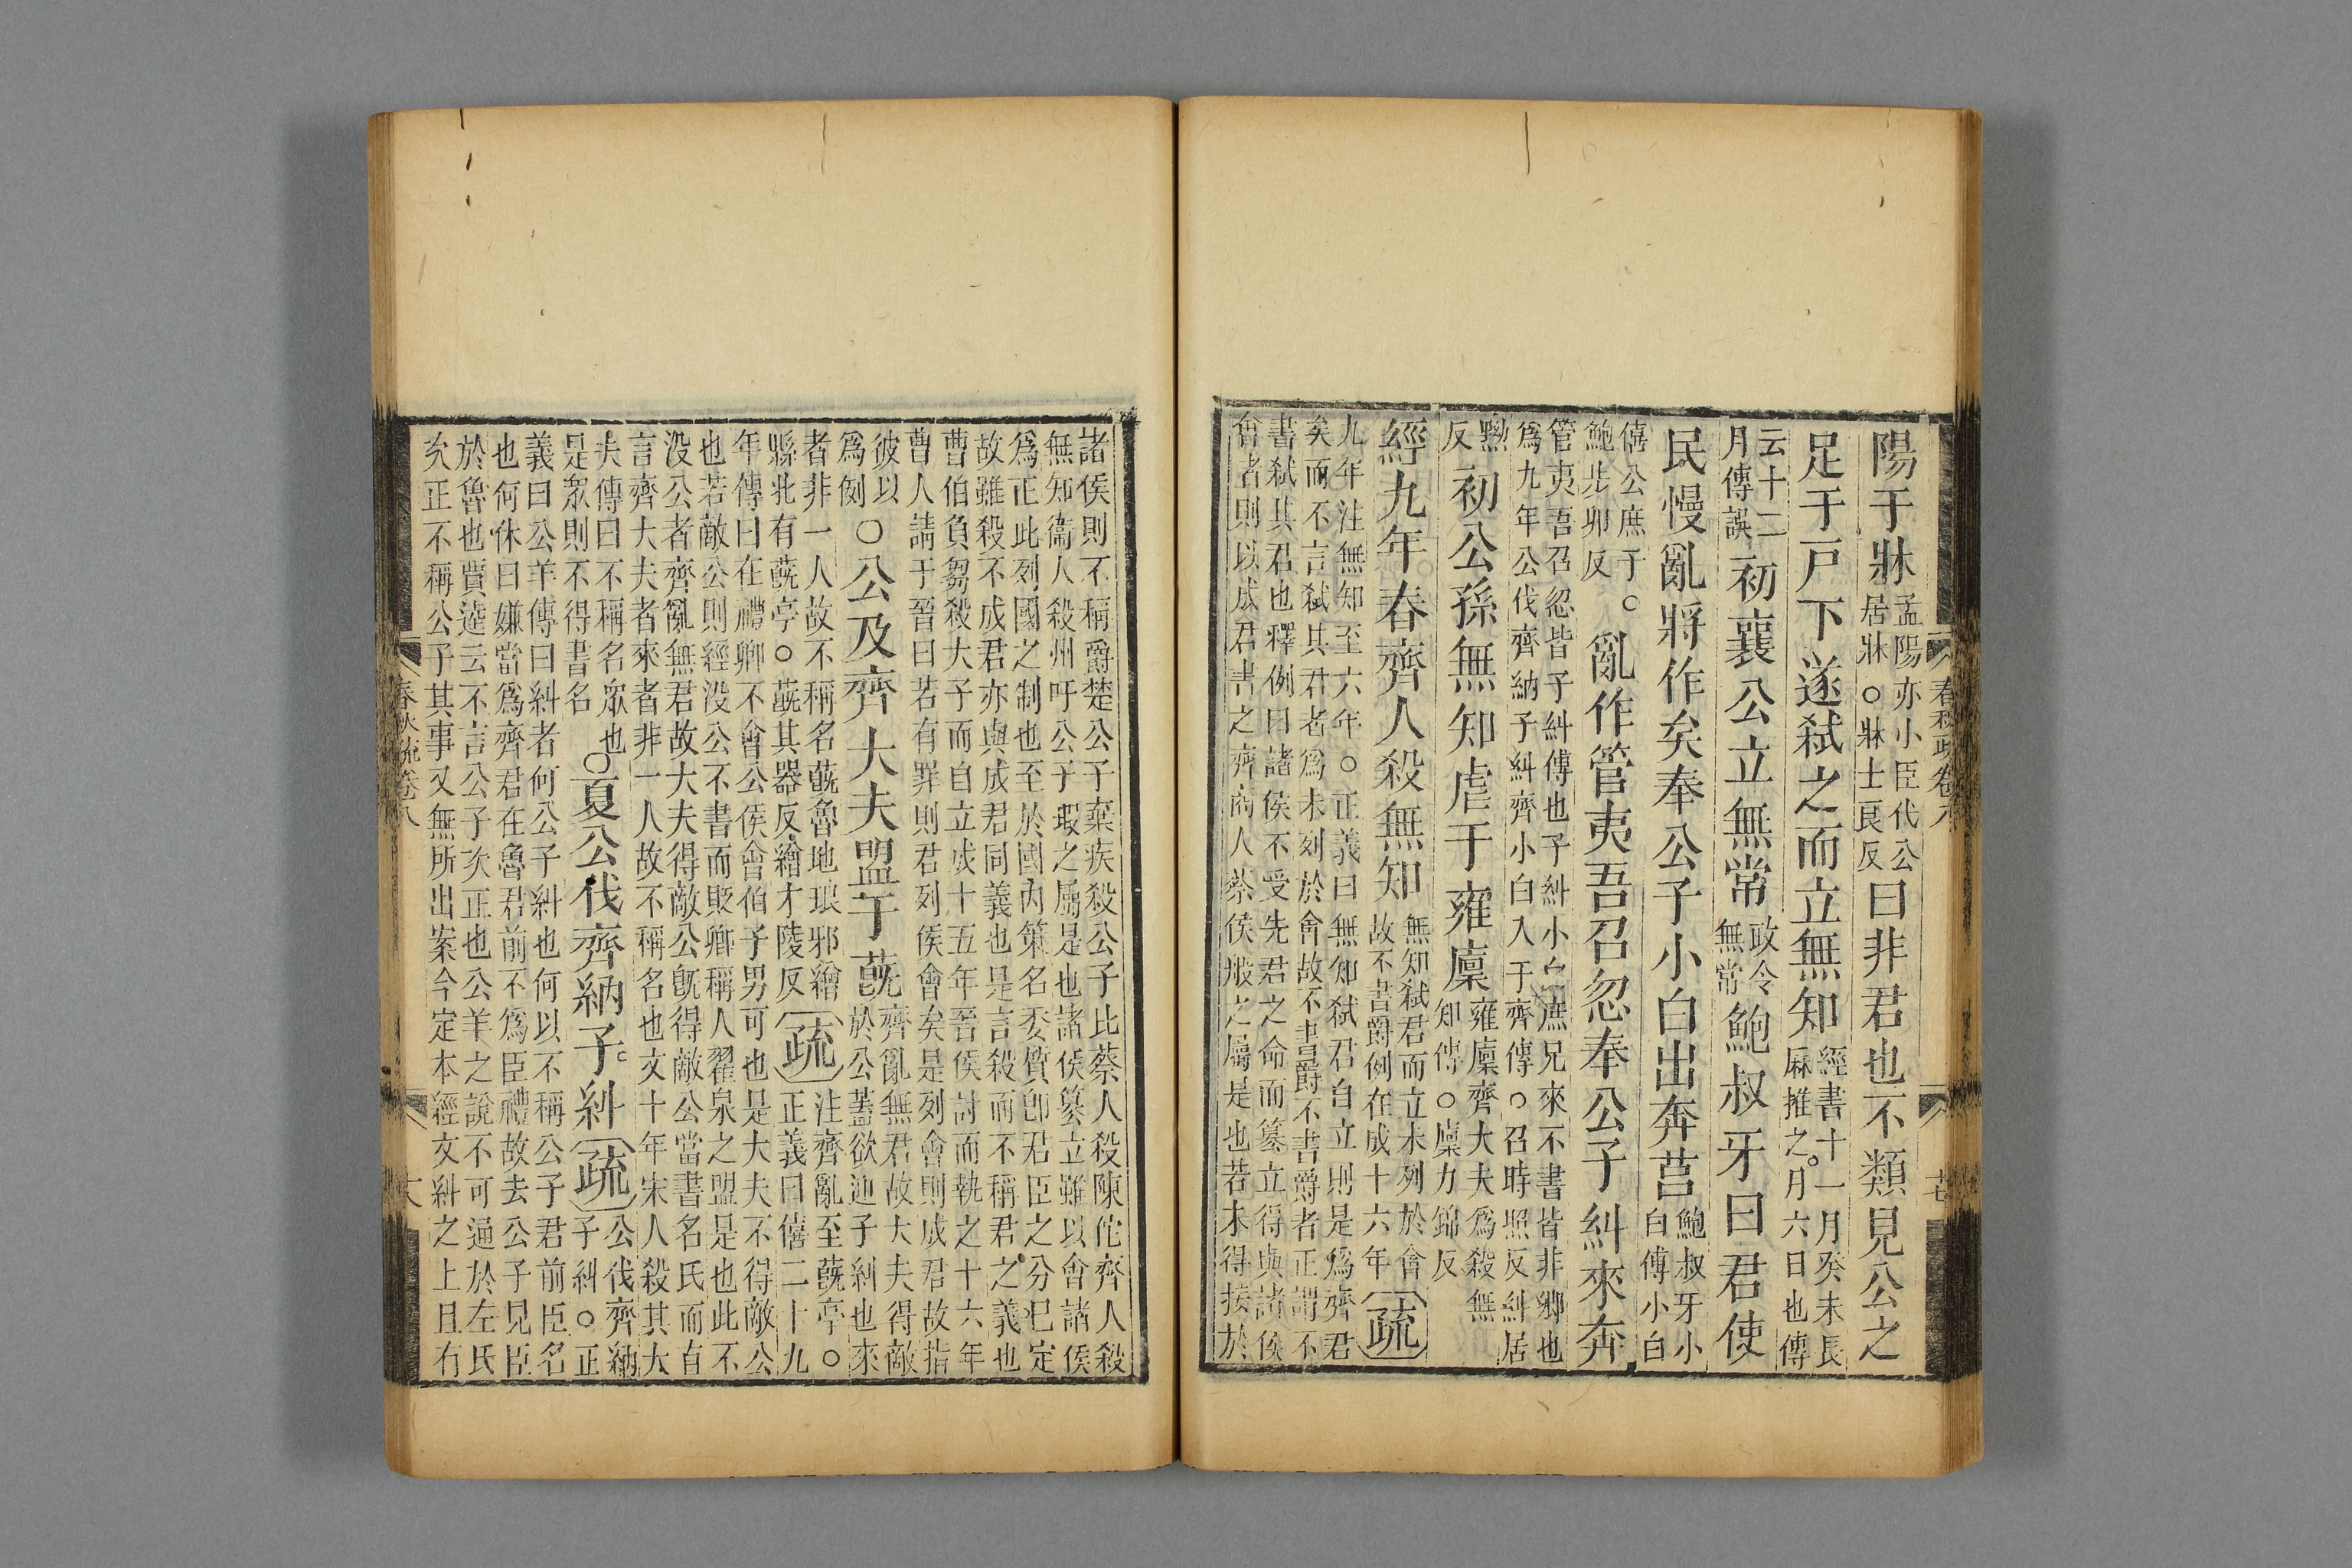 陽于牀孟陽亦小臣代公居牀○牀士良反曰非君也不類見公之
足于戶下遂弑之而立無知經書十一月癸未長厤推之月六日也傳
云十二月傳誤初襄公立無常政令無常鮑叔牙曰君使
民慢亂將作矣奉公子小白出奔莒鮑叔牙小白傅小白
僖公庶子○鮑步卯反亂作管夷吾召忽奉公子糾來奔
管夷吾召忽皆子糾傅也子糾小白庶兄來不書皆非卿也
爲九年公伐齊納子糾齊小白入于齊傳○召時照反糾居
黝反初公孫無知虐于雍廩雍廩齊大夫爲殺無知傳○廩力錦反
經九年春齊人殺無知無知弑君而立未列於會故不書爵例在成十六年疏
九年注無知至六年○正義曰無知弑君自立則是爲齊君
矣而不言弑其君者爲未列於會故不書爵不書爵者正謂不
書弑其君也釋例曰諸侯不受先君之命而篡立得與諸侯
會者則以成君書之齊商人蔡侯般之屬是也若未得接於
春秋疏卷八
諸侯則不稱爵楚公子棄疾殺公子比蔡人殺陳佗齊人殺
無知衞人殺州吁公子瑕之屬是也諸侯篡立雖以會諸侯
爲正此列國之制也至於國內策名委質卽君臣之分已定
故雖殺不成君亦與成君同義也是言殺而不稱君之義也
曹伯負芻殺大子而自立成十五年晉侯討而執之十六年
曹人請于晉曰若有罪則君列侯會矣是列會則成君故指
彼以爲例○公及齊大夫盟于蔇齊亂無君故大夫得敵於公蓋欲迎子糾也來
者非一人故不稱名蔇魯地琅邪繒縣北有蔇亭○蔇其器反繒才陵反疏注齊亂至蔇亭○正義曰僖二十九
年傳曰在禮卿不會公侯會伯子男可也是大夫不得敵公
也若敵公則經没公不書而貶卿稱人翟泉之盟是也此不
没公者齊亂無君故大夫得敵公旣得敵公當書名氏而直
言齊大夫者來者非一人故不稱名也文十年宋人殺其大
夫傳曰不稱名眾也是眾則不得書名○夏公伐齊納子糾疏公伐齊納子糾○正
義曰公羊傳曰糾者何公子糾也何以不稱公子君前臣名
也何休曰嫌當爲齊君在魯君前不爲臣禮故去公子見臣
於魯也賈逵云不言公子次正也公羊之說不可通於左氏
次正不稱公子其事又無所出案今定本經文糾之上且有
春秋疏卷八